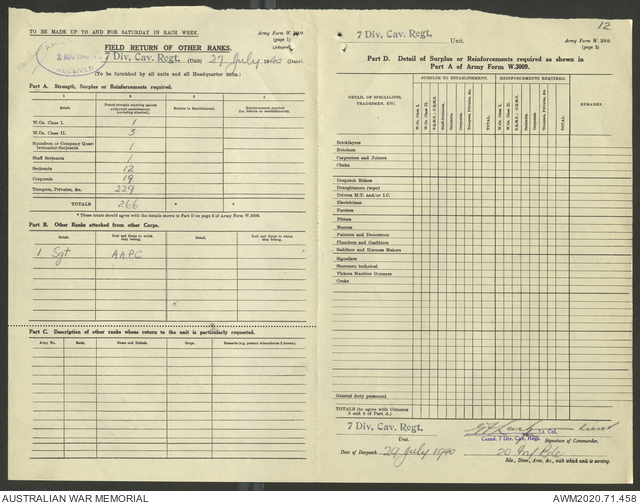 TO BE MADE UP TO AND FOR SATURDAY IN EACH WEEK.
Army Form W. 3009
(page 1)
(Adapted)
RECEIVED
FIELD RETURN OF OTHER RANKS.
7 Div. Cav. Regt. (Unit) 27 July 1940 (Date).
(To be furnished by all units and all Headquarter units.)
Part A. Strength, Surplus or Reinforcements required.
1 2 3 4
Detail.
Surplus to Establishment.
W.Os. Class I. 1
W.Os. Class II. 3
Squadron or Company Quartermaster-Serjeants 1
Staff Serjeants 1
Serjeants 12
Corporals 19
Troopers, Privates, &c. 229
TOTALS 266 * *
* These totals should agree with the details shown in Part D on page 2 of Army Form W.3009.
Part B. Other Ranks attached from other Corps.
Detail. Unit and Corps to which they belong. Detail. Unit and Corps to which they belong.
1 Sgt AAPC
Part C. Description of other ranks whose return to the unit is particularly requested.
Army No. Rank. Name and Initials. Corps. Remarks (e.g. present whereabouts if known).
12.
7 Div. Cav. Regt.
Unit.
Army Form W. 3009
(page 2)
Part D. Detail of Surplus or Reinforcements required as shown in
Part A of Army Form W.3009.
DETAIL OF SPECIALISTS, TRADESMEN, ETC.
SURPLUS TO ESTABLISHMENT.
REINFORCEMENTS REQUIRED.
REMARKS
W.Os. Class I.
W.Os. Class II.
Staff Serjeants.
Serjeants.
Corporals.
Troopers, Privates, &c.
TOTAL.
W.Os. Class I.
W.Os. Class II.
Staff Serjeants.
Serjeants.
Corporals.
Troopers, Privates, &c.
TOTAL.
Bricklayers
Butchers
Carpenters and Joiners
Clerks
Despatch Riders
Draughtsmen (topo)
Drivers H.T. and/or I.C.
Electricians
Farriers
Fitters
Masons
Painters and Decorators
Plumbers and Gasfitters
Saddlers and Harness Makers
Signallers
Storemen technical
Vickers Machine Gunners
Cooks
General duty personnel
TOTALS (to agree with Columns
3 and 4 of Part A).
7 Div. Cav. Regt.
Unit.
Lt. Col.
Comd. 7 Div. Cav. Regt. Signature of Commander.
Date of Despatch 29 July 1940
20 Inf Bde
Bde., Divn., Area, &c., with which unit is serving.
AUSTRALIAN WAR MEMORIAL
AWM2020.71.458